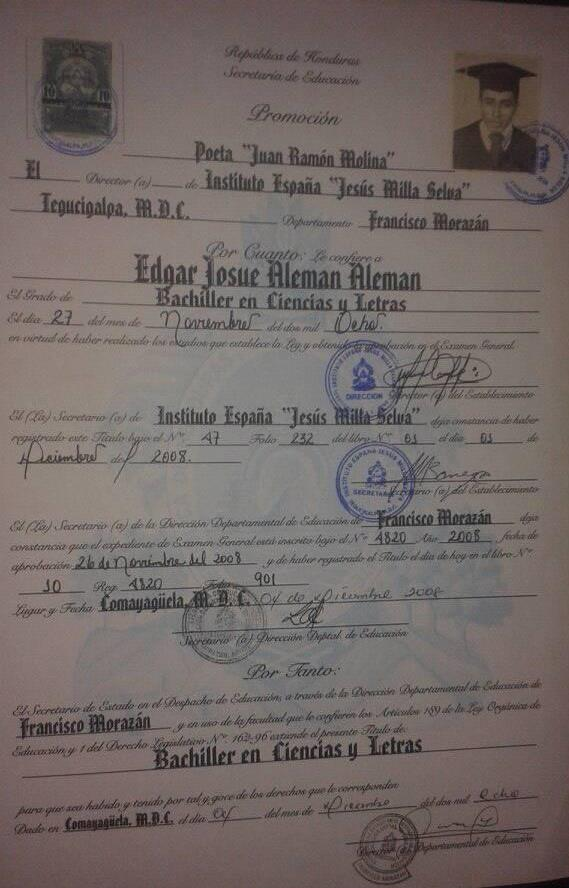 República de Honduras
Secretaría de Educación
10 10
Promoción
Poeta "Juan Ramón Molina"
El Director (a) de Instituto España "Jesús Milla Selva"
Tegucigalpa, M.D.C. Departamento Francisco Morazán
Por Cuanto: Le confiere a
Edgar Josue Aleman Aleman
El Grado de Bachiller en Ciencias y Letras
El día 27 del mes de Noviembre del dos mil Ocho.
en virtud de haber realizado los estudios que establece la Ley y obtenido la aprobación en el Examen General.
DIRECCION
Director (a) del Establecimiento
El (La) Secretario (a) de Instituto España "Jesús Milla Selva" deja constancia de haber
registrado este Título bajo el Nº. 47 Folio 232 del libro Nº 01 el día 01 de
Diciembre del 2008.
INSTITUTO ESPAÑA JESUS MILLA SELVA
SECRETARIA
Secretario (a) del Establecimiento
El (La) Secretario (a) de la Dirección Departamental de Educación de Francisco Morazán deja
constancia que el expediente de Examen General está inscrito bajo el Nº 4820 Año 2008 fecha de
aprobación 26 de Noviembre del 2008 y de haber registrado el Título el día de hoy en el libro Nº
10 Reg. 4820 Folio 901
Lugar y Fecha Comayagüela, M.D.C. 04 de Diciembre 2008
Secretario (a) Dirección Deptal. de Educación
Por Tanto:
El Secretario de Estado en el Despacho de Educación, a través de la Dirección Departamental de Educación de
Francisco Morazán y en uso de la facultad que le confieren los Artículos 189 de la Ley Orgánica de
Educación y 1 del Derecho Legislativo Nº. 162-96 extiende el presente Título de:
Bachiller en Ciencias y Letras
para que sea habido y tenido por tal y goce de los derechos que le corresponden
Dado en Comayagüela, M.D.C. el día 04 del mes de Diciembre del dos mil Ocho
Director (a) Departamental de Educación